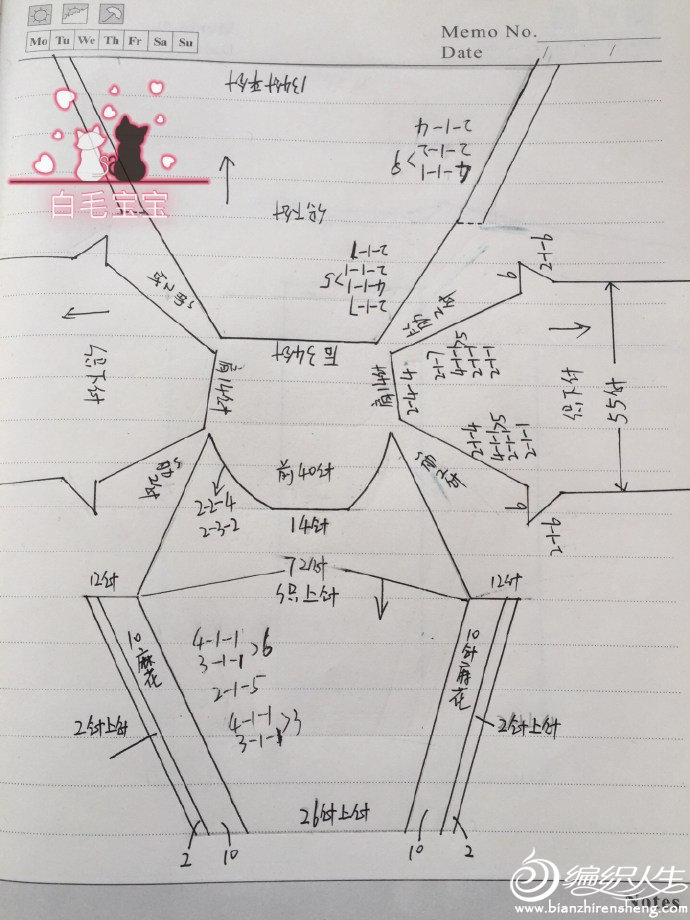 Memo No.
Mo Tu We Th Fr Sa Su
Date / /
134针平针
2-1-4
2-1-2
4-1-1>9
白毛宝宝
全下针
2-1-1
2-1-1
4-1-1>5
2-1-7
后34针
全下针
肩14针
肩14针
2-4-4
2-1-7
4-1-1>5
2-1-1
2-1-1
9
2-1-9
全下针
55针
2-1-4
4-1-1>5
2-1-1
2-1-1
9
2-1-9
前40针
2-2-4
2-3-2
14针
72针
全上针
12针
12针
10麻花
10针麻花
4-1-1
3-1-1>6
2-1-5
4-1-1
3-1-1>3
2针上针
2针上针
26针上针
2
10
10
2
编织人生
www.bianzhirensheng.com
Notes